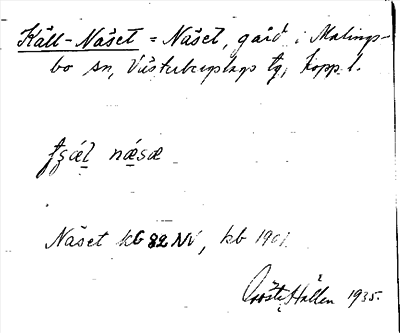 Käll-Näset = Näset, gård i Malings-
bo sn, Västerbergslags tg, Kopp. l.
näsæ
Näset kb 82 NV, kb 1901.
Gösta Hallen 1935.